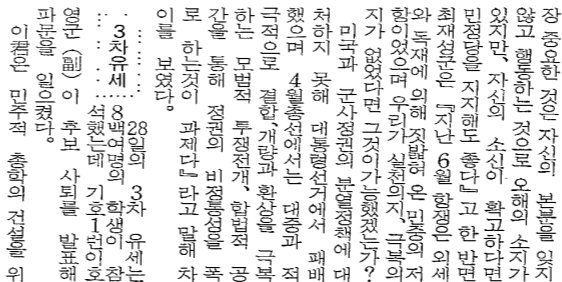 장 중요한 것은 자신의 본분을 잊지
않고 행동하는 것으로 오해의 소지가
있지만, 자신의 소신이 확고하다면
민정당을 지지해도 좋다』고 한 반면
최재성군은 『지난 6월 항쟁은 외세
와 독재에 의해 짓밟혀 온 민중의 저
항이었으며 우리가 실천의지, 극복의
지가 없었다면 그것이가능했겠는가?
미국과 군사정권의 분열정책에 대
처하지 못해 대통령선거에서 패배
했으며 4월총선에서는 대중과 적
극적으로 결합,개량과 환상을 극복
하는 모범적 투쟁전개, 합법적 공
간을 통해 정권의 비정통성을 폭
로 하는것이 과제다』라고 말해 차
이를 보였다.
3차유세
28일의 3차 유세는
8백여명의 학생이 참
석했는데 기호1런이호
영군(副)이 후보 사퇴를 발표해
파문을 일으켰다.
이君은 민주적 총학의 건설을 위